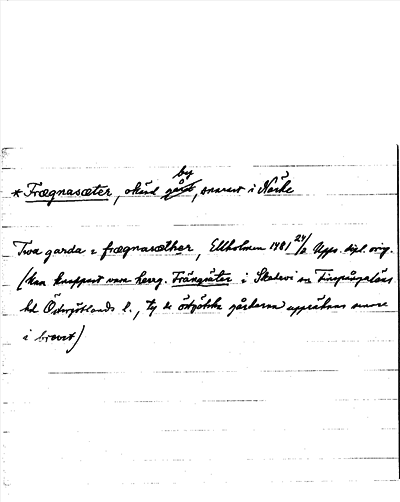 by
*Frægnasæter, okänd gård, snarast i Närke
Twa garda i frægnasæther, Ellholmen 1481 24/2 Upps. dipl. orig.
(kan knappast vara herrg. Frängsäter i Skedevi sn Finspångaläns
hd Östergötlands l., ty de östgötska gårdarna uppräknas senare
i brevet)